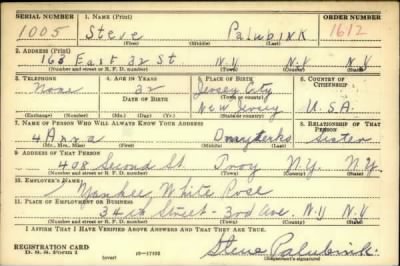 SERIAL NUMBER 1. NAME (Print) ORDER NUMBER
1005 Steve Palubink 1612
(First) (Middle) (Last)
2. ADDRESS (Print)
163 East 32 St. N.Y N.Y N.Y
(Number and street or R. F. D. number) (Town) (County) (State)
3. TELEPHONE 4. AGE IN YEARS 5. PLACE OF BIRTH 6. COUNTRY OF CITIZENSHIP
None 32 Jersey City
DATE OF BIRTH (Town or county)
New Jersey U.S.A.
(Exchange) (Number) (Mo.) (Day) (Yr.) (State or country)
7. NAME OF PERSON WHO WILL ALWAYS KNOW YOUR ADDRESS 8. RELATIONSHIP OF THAT PERSON
Anna Sister
(Mr., Mrs., Miss) (First) (Middle) (Last)
9. ADDRESS OF THAT PERSON
408 Second St Troy N.Y. N.Y.
(Number and street or R. F. D. number) (Town) (County) (State)
10. EMPLOYER'S NAME
White Rose
11. PLACE OF EMPLOYMENT OR BUSINESS
34th Street - 3rd Ave. N.Y N.Y
(Number and street or R. F. D. number) (Town) (County) (State)
I AFFIRM THAT I HAVE VERIFIED ABOVE ANSWERS AND THAT THEY ARE TRUE.
REGISTRATION CARD Steve Palubink
D. S. S. FORM 1 (over) 16—17105 (Registrant's signature)